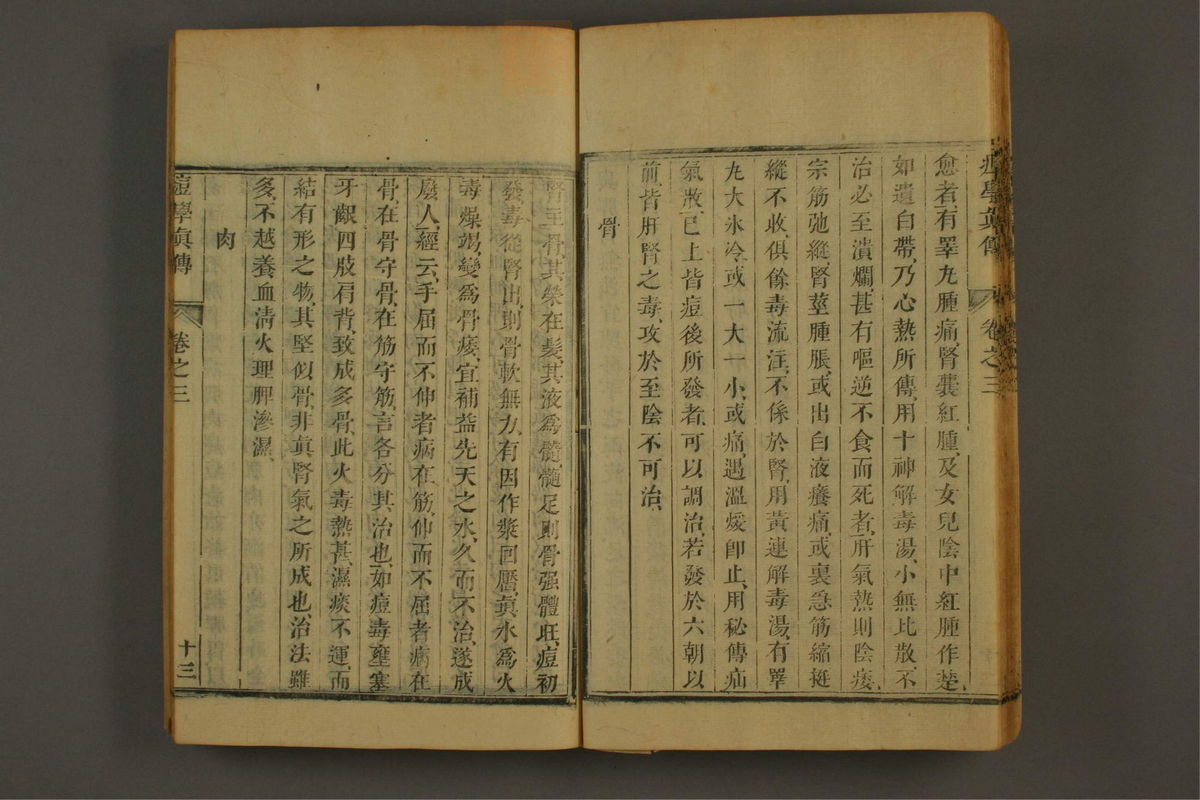 痘學真傳 卷之三
愈者有睪丸腫痛腎囊紅腫及女兒陰中紅腫作楚
如遺白帶乃心熱所傳用十神解毒湯小無比散不
治必至潰爛甚有嘔逆不食而死者肝氣熱則陰痿
宗筋弛縱腎莖腫脹或出白液癢痛或裏急筋縮挺
縱不收俱餘毒流注不係於腎用黃連解毒湯有睪
丸大氷冷或一大一小或痛遇溫煖卽止用秘傳疝
氣散已上皆痘後所發者可以調治若發於六朝以
前皆肝腎之毒攻於至陰不可治
骨
腎主骨其榮在髮其液爲髓髓足則骨强體旺痘初
發毒從腎出則骨軟無力有因作漿回靨真水爲火
毒燥竭變爲骨痿宜補益先天之水久而不治遂成
廢人經云手屈而不伸者病在筋伸而不屈者病在
骨在骨守骨在筋守筋言各分其治也如痘毒壅塞
牙齦四肢肩背致成多骨此火毒熱甚濕痰不運而
結有形之物其堅似骨非真腎氣之所成也治法雖
多不越養血淸火理脾滲濕
肉
痘學真傳 卷之三 十三